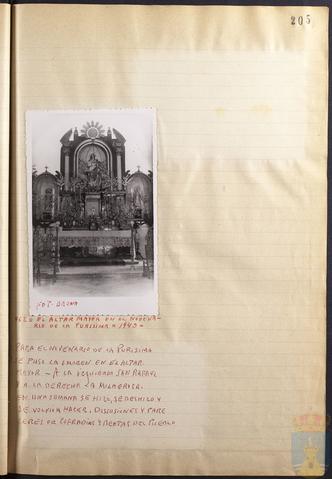 205
FOT- BRONA
EL ALTAR MAYOR EN EL NOVENA-
RIO DE LA PURISIMA = 1943 =
PARA EL NOVENARIO DE LA PURISIMA
SE PUSO LA IMAGEN EN EL ALTAR
MAYOR - A LA IZQUIERDA SAN RAFAEL
Y A LA DERECHA LA MILAGROSA.
EN UNA SEMANA SE HIZO, SE DESHIZO Y
SE VOLVIO A HACER, DISCUSIONES Y PARE
CERES DE COFRADIAS Y BEATAS DEL PUEBLO